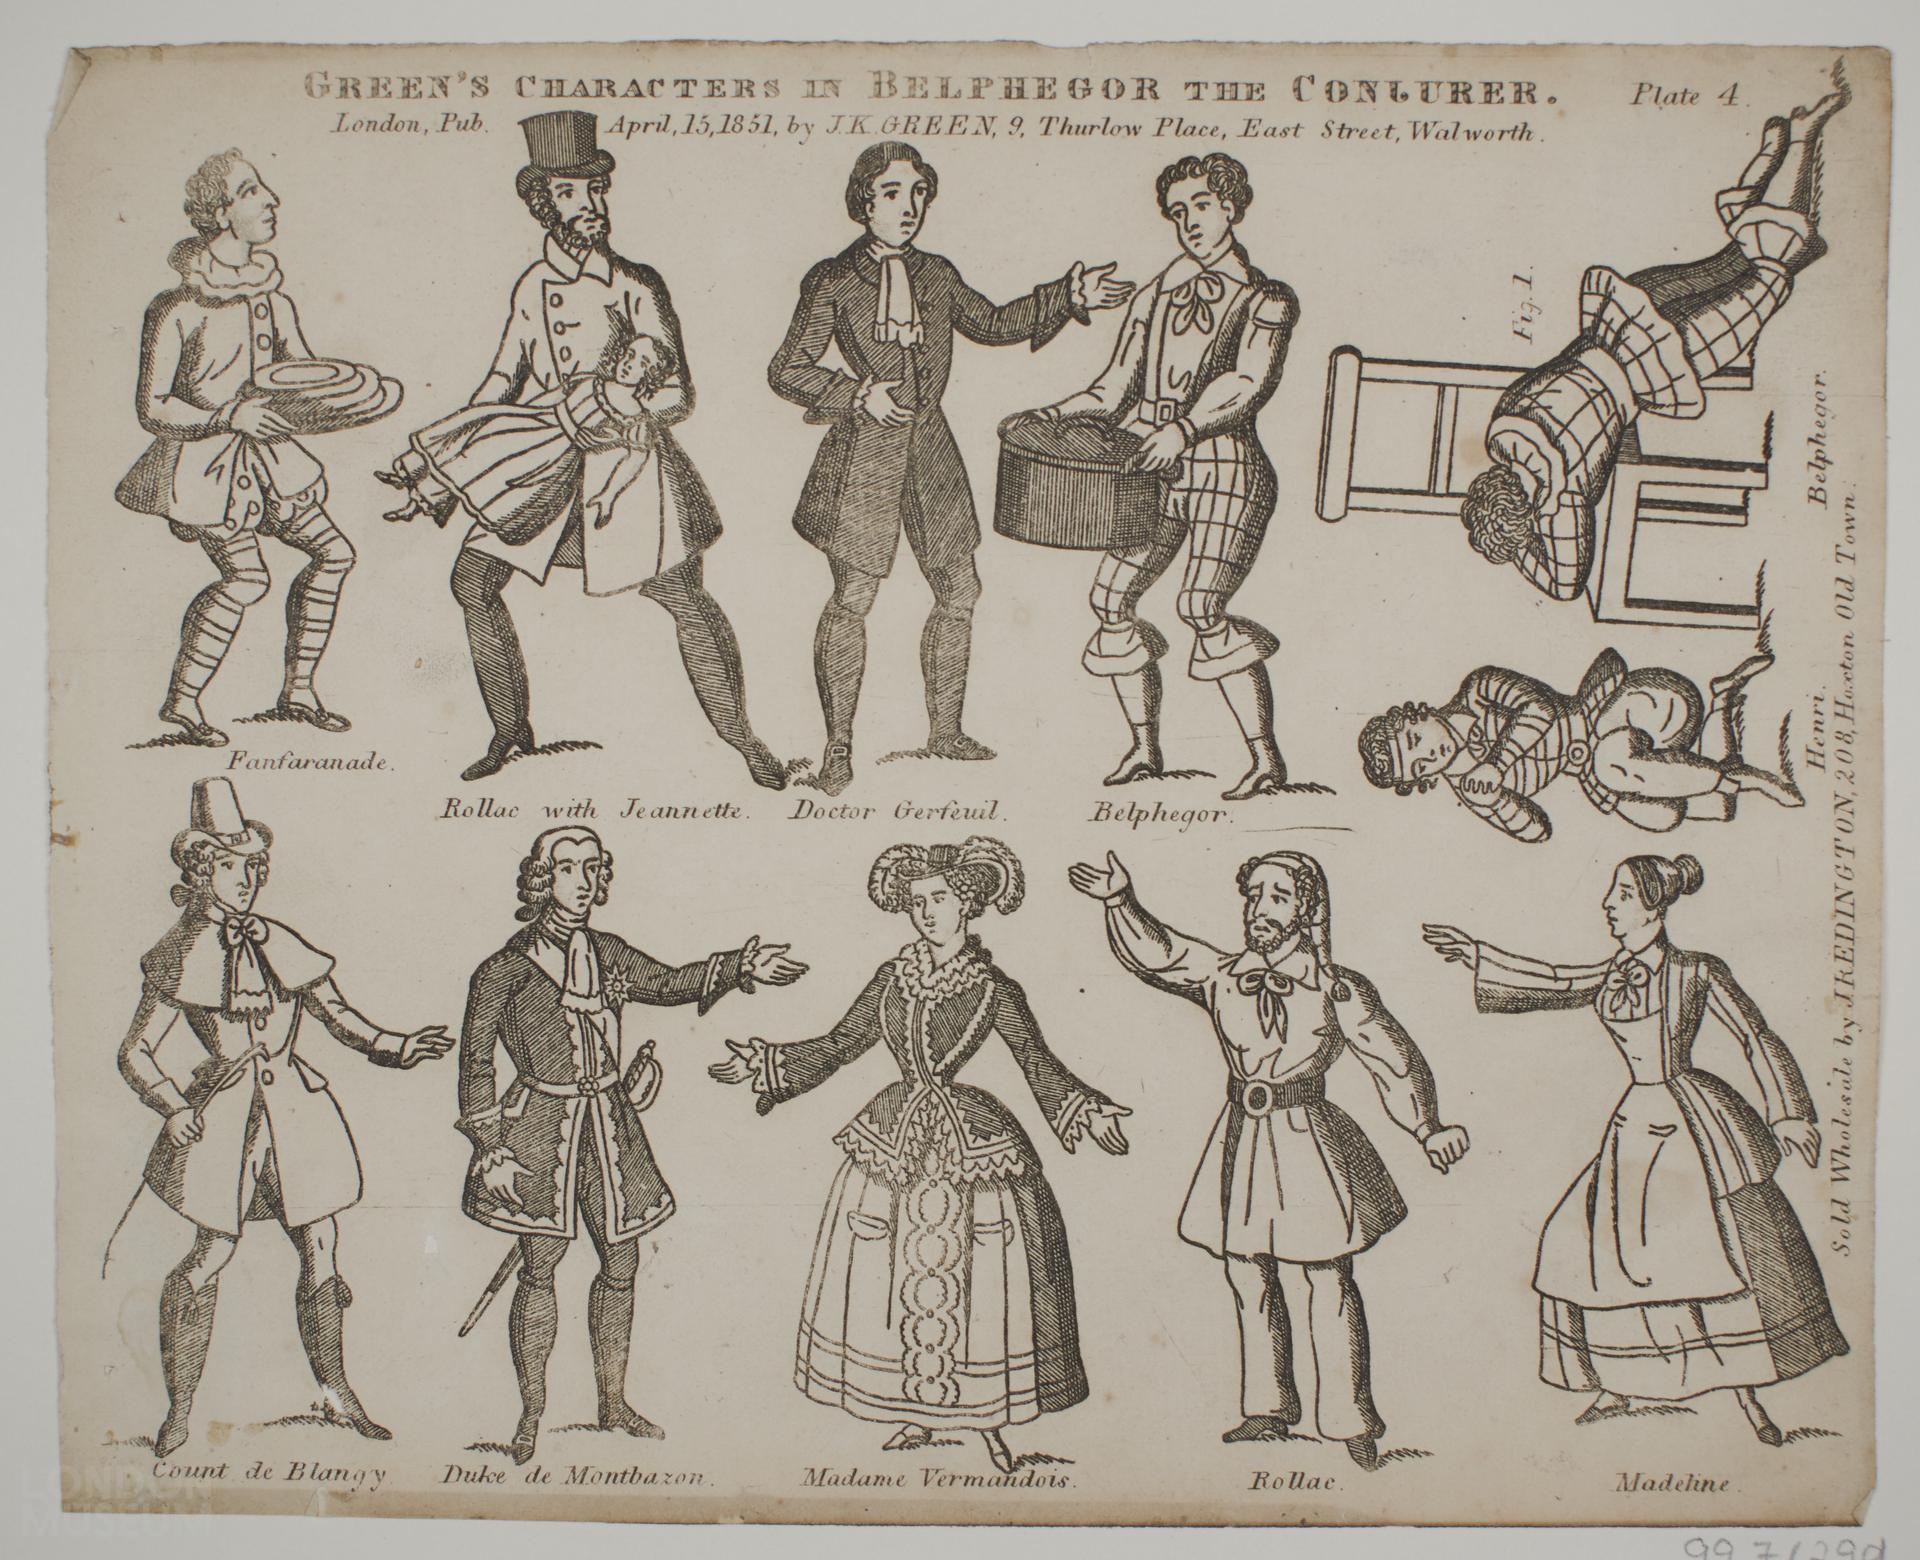 GREEN'S CHARACTERS IN BELPHEGOR THE CONJURER. Plate 4.
London, Pub. April, 15, 1851, by J.K. GREEN, 9, Thurlow Place, East Street, Walworth.
Fig. 1.
Belphegor.
Henri.
Sold Wholesale by J. REDINGTON, 208, Hoxton Old Town.
Fanfaranade.
Rollac with Jeannette. Doctor Gerfeuil. Belphegor.
Count de Blangy Duke de Montbazon. Madame Vermandois. Rollac. Madeline.
LONDON
MUSEUM